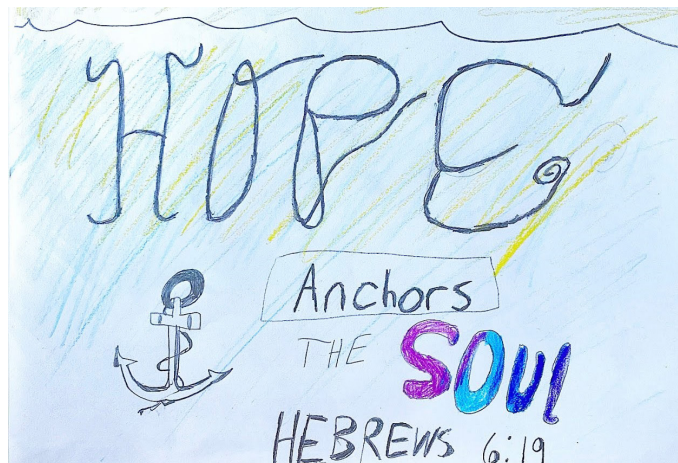 HOPE
Anchors
THE SOUl
HEBREWS 6:19